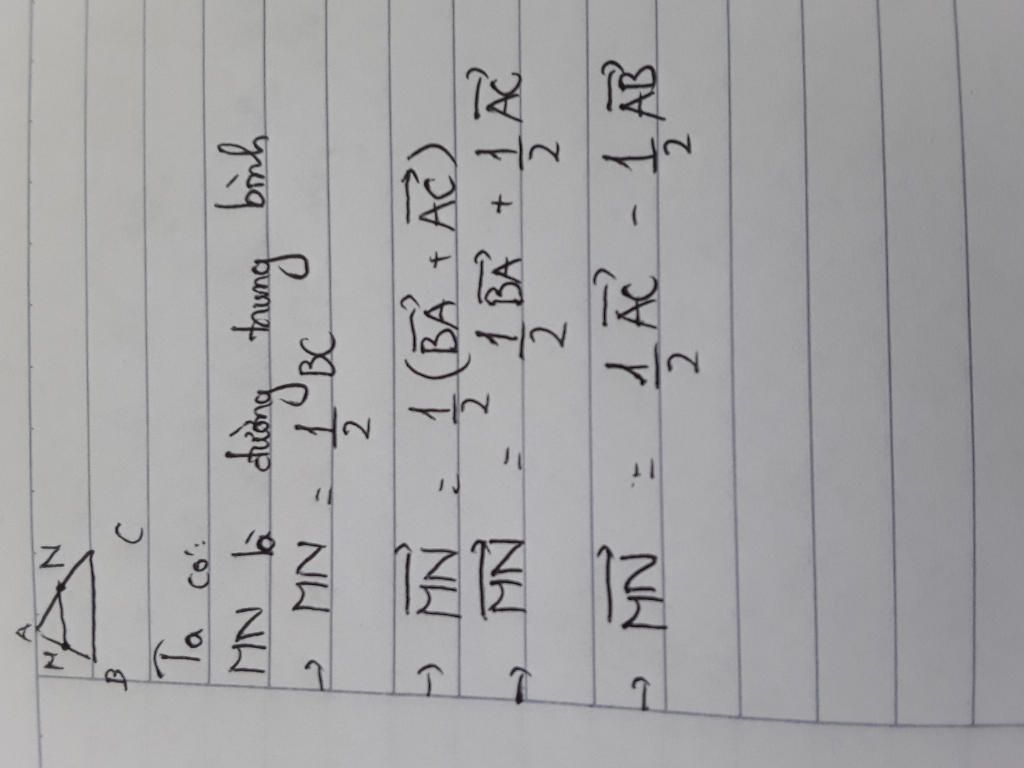 A
M N
B C
Ta có:
MN là đường trung bình
→ MN = 1/2 BC
→ \overrightarrow{MN} = 1/2 (\overrightarrow{BA} + \overrightarrow{AC})
→ \overrightarrow{MN} = 1/2 \overrightarrow{BA} + 1/2 \overrightarrow{AC}
→ \overrightarrow{MN} = 1/2 \overrightarrow{AC} - 1/2 \overrightarrow{AB}